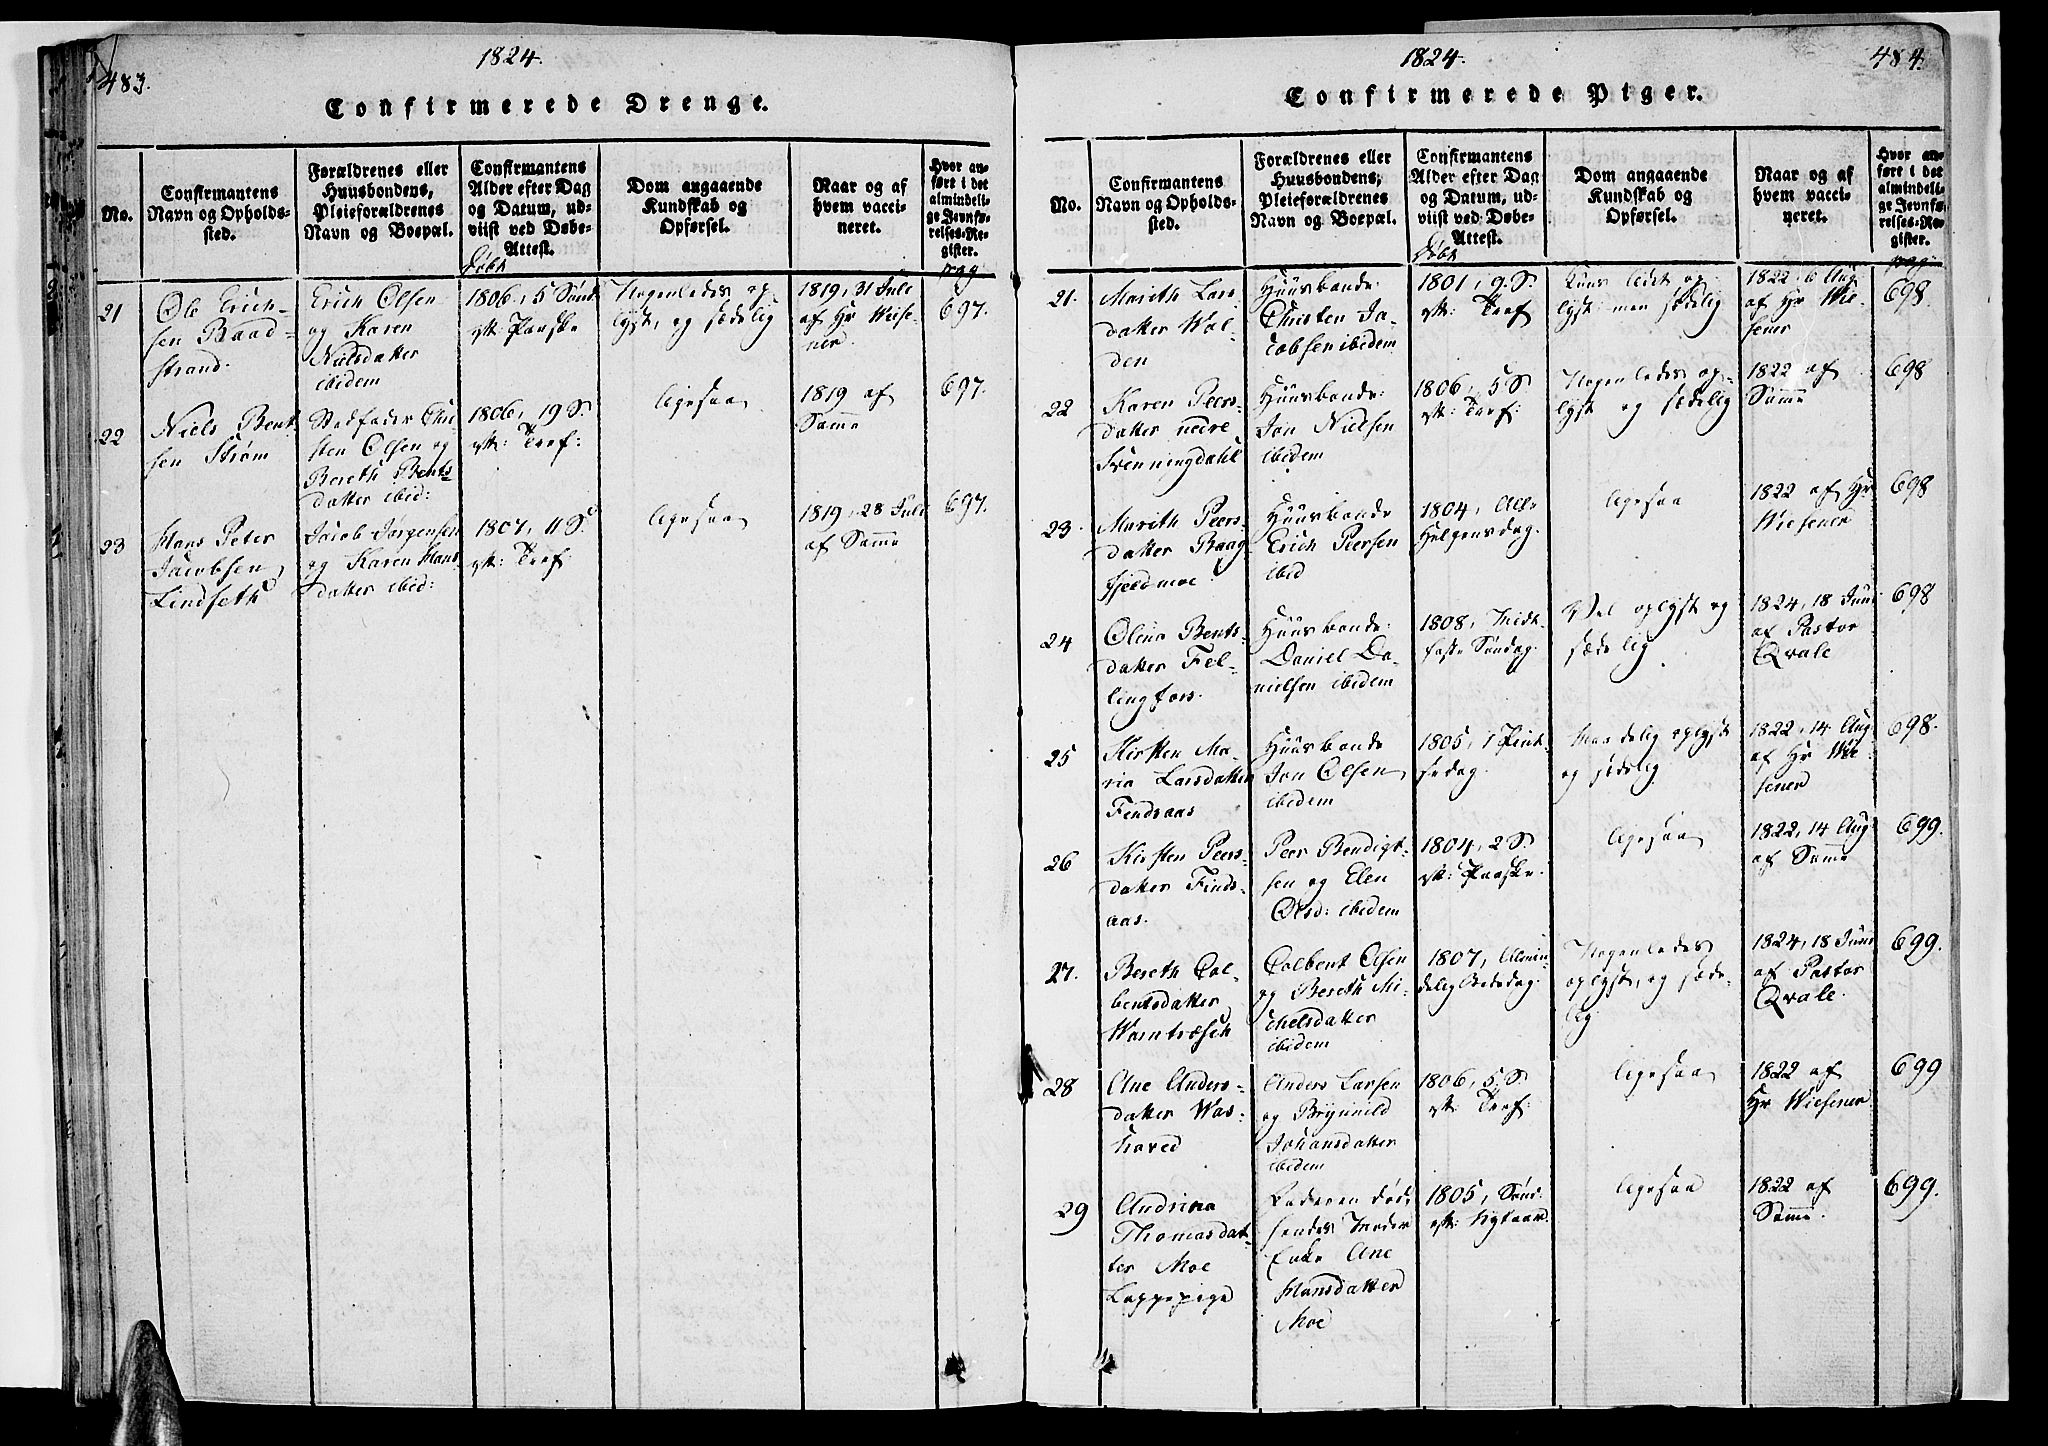 483.
1824.
Confirmerede Drenge.
No.
Confirmantens
Navn og Opholds-
sted.
Forældrenes eller
Huusbondens,
Pleieforældrenes
Navn og Boepæl.
Confirmantens
Alder efter Dag
og Datum, ud-
viist ved Døbe-
Attest.
Døbt
Dom angaaende
Kundskab og
Opførsel.
Naar og af
hvem vacci-
neret.
Hvor an-
ført i det
almindeli-
ge Jevnfø-
relses-Re-
gister.
pag
21
Ole Erich-
sen Baad-
strand.
Erich Olsen
og Karen
Nielsdatter
ibidem
1806, 5 Sønd
eft: Paaske
Nogenledes op
lyst, og sædelig
1819, 31 Juli
af Hr Wiese-
ner.
697.
22
Niels Bent
sen Strøm
Stedfader Chri
sten Olsen og
Bereth Bents-
datter ibid:
1806, 19 S.
eft: Tref:
ligesaa
1819 af
Samme
697.
23
Hans Peter
Jacobsen
Lindseth
Jacob Jørgensen
og Karen Hans
datter ibid:
1807, 11 S.
eft: Tref:
ligesaa
1819, 28 Juli
af Samme
697.
1824.
484.
Confirmerede Piger.
No.
Confirmantens
Navn og Opholds-
sted.
Forældrenes eller
Huusbondens,
Pleieforældrenes
Navn og Boepæl.
Confirmantens
Alder efter Dag
og Datum, ud-
viist ved Døbe-
Attest.
Døbt
Dom angaaende
Kundskab og
Opførsel.
Naar og af
hvem vacci-
neret.
Hvor an-
ført i det
almindeli-
ge Jevnfø-
relses-Re-
gister.
pag
21.
Marith Lars
datter Wol-
den
Huusbonde:
Christen Ja-
cobsen ibidem
1801, 9. S.
eft: Tref
op-
lyst men sædelig
1822, 6 Aug
af Hr Wie-
sener
698.
22
Karen Peers-
datter nedre
Svenningdahl
Huusbonde:
Jon Nielsen
ibidem
1806, 5 S.
eft: Tref:
Nogenledes op-
lyst og sædelig
1822 af
Samme
698
23.
Marith Peers-
datter Baag
fjeldmoe
Huusbonde
Erich Peersen
ibid
1804, Alle
Helgensdag.
ligesaa
1822 af Hr
Wiesener
698
24
Olina Bents-
datter Fel-
lingfors.
Huusbonde:
Daniel Da-
nielsen ibidem
1808, Midt-
faste Søndag.
Vel oplyst og
sædelig
1824, 18 Juni
af Pastor
Qvale
698
25
Kirsten Ma-
ria Larsdatter
Findsaas
Huusbonde
Jon Olsen
ibidem
1805, 1 Pint-
sedag.
Maadelig oplyst
og sædelig
1822, 14 Aug
af Hr Wie-
sener
698.
26
Kirsten Peers-
datter Finds-
aas.
Peer Bendigt-
sen og Elen
Olsd: ibidem
1804, 2 S.
eft: Paaske.
ligesaa
1822, 14 Aug
af Samme
699.
27.
Bereth Col-
bentsdatter
Wamtræsch
Colbent Olsen
og Bereth Mi-
chelsdatter
ibidem
1807, Almin-
delig Bededag.
Nogenledes
oplyst, og sæde-
lig
1824, 18 Juni
af Pastor
Qvale.
699.
28
Ane Anders-
datter Was-
hoved
Anders Larsen
og Brynnild
Johansdatter
ibidem
1806, 5. S.
eft: Tref:
ligesaa
1822 af
Hr Wiesener
699
29
Andrina
Thomasdat-
ter Moe
Lappepige
Faderen død,
hendes Moder
Enke Ane
Hansdatter
Moe
1805, Sønd.
eft: Nytaar.
ligesaa
1822 af
Samme.
699.